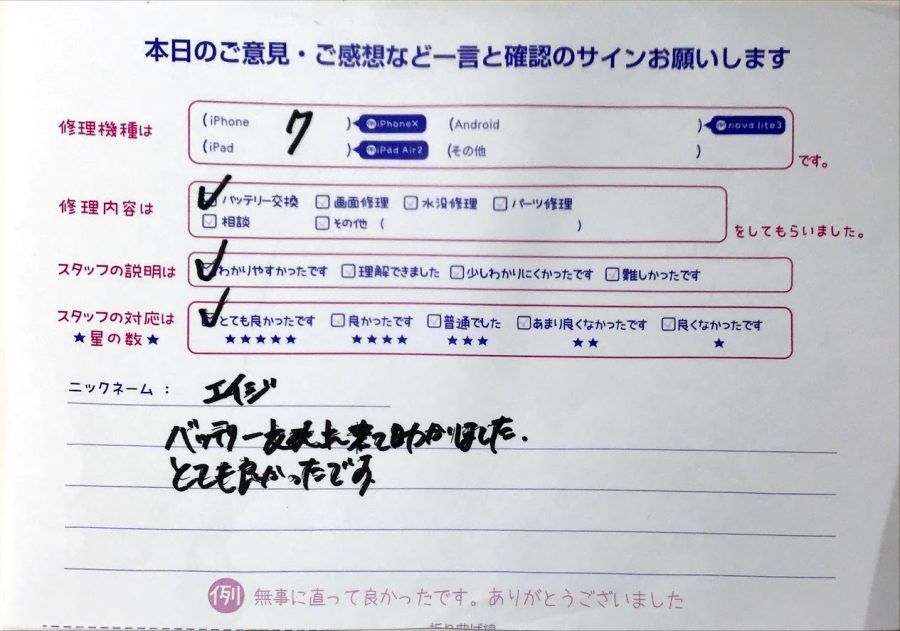 本日のご意見・ご感想など一言と確認のサインお願いします
修理機種は
(iPhone 7 ) 例iPhoneX (Android ) 例nova lite3
(iPad ) 例iPad Air2 (その他 )
です。
修理内容は
バッテリー交換 画面修理 水没修理 パーツ修理
相談 その他 ( )
をしてもらいました。
スタッフの説明は
わかりやすかったです 理解できました 少しわかりにくかったです 難しかったです
スタッフの対応は
★星の数★
とても良かったです 良かったです 普通でした あまり良くなかったです 良くなかったです
★★★★★ ★★★★ ★★★ ★★ ★
ニックネーム : エイジ
バッテリー交換出来て助かりました.
とても良かったです
例 無事に直って良かったです。ありがとうございました
折り曲げ線